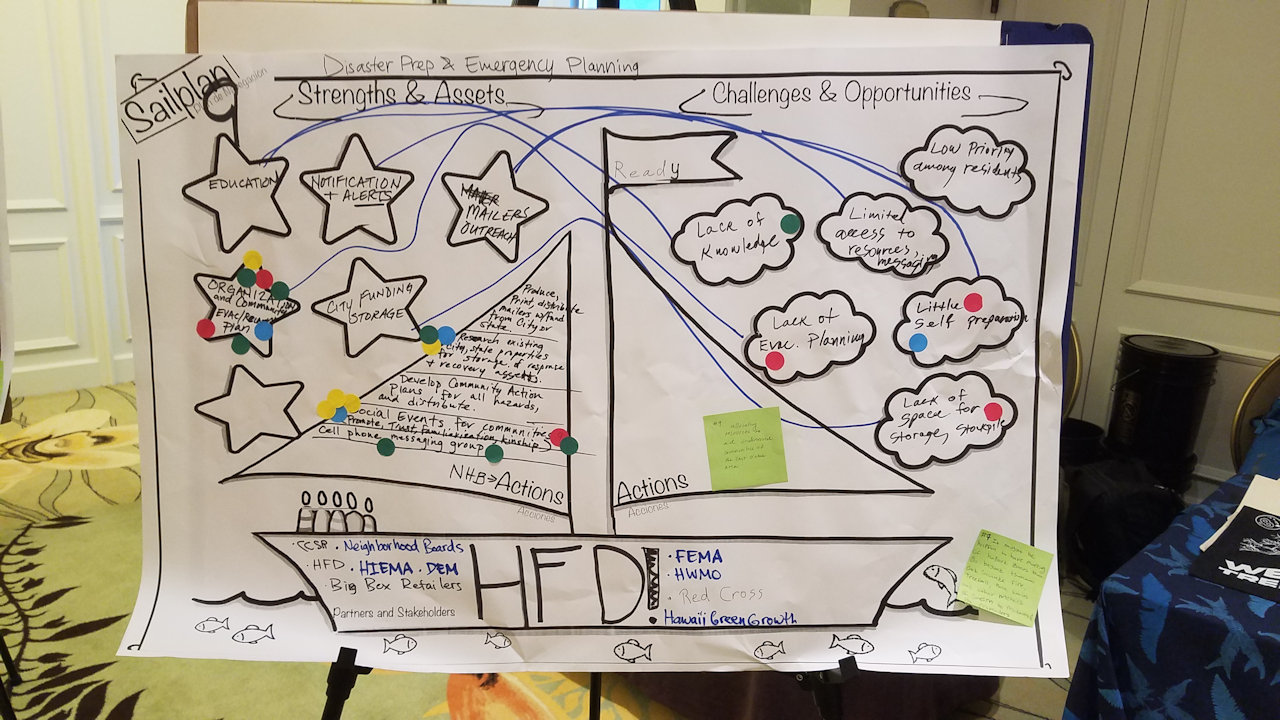 Disaster Prep & Emergency Planning
Sailplan
Strengths & Assets
Challenges & Opportunities
EDUCATION
NOTIFICATION
+ ALERTS
MAILERS
OUTREACH
ORGANIZATION
and Community
Evac/
Plan
CITY FUNDING
STORAGE
Ready
Lack of
Knowledge
Limited
access to
resources,
messaging
Low Priority
among residents
Lack of
Evac. Planning
Little
Self preparation
Lack of
Space for
Storage, Stockpile
Produce,
Print, distribute
mailers, w/fund
from City or
state.
Research existing
City, state properties
for storage of response
+ recovery assets.
Develop Community Action
Plans for all hazards,
and distribute.
Social Events for communities
Promote, Trust, familiarization, kinship,
Cell phone messaging group
NHB→Actions
Acciones
Actions
Acciones
CCSR · Neighborhood Boards
HFD · HIEMA · DEM
· Big Box Retailers
Partners and Stakeholders
HFD!
· FEMA
· HWMO
· Red Cross
Hawaii Green Growth
WE
TREE